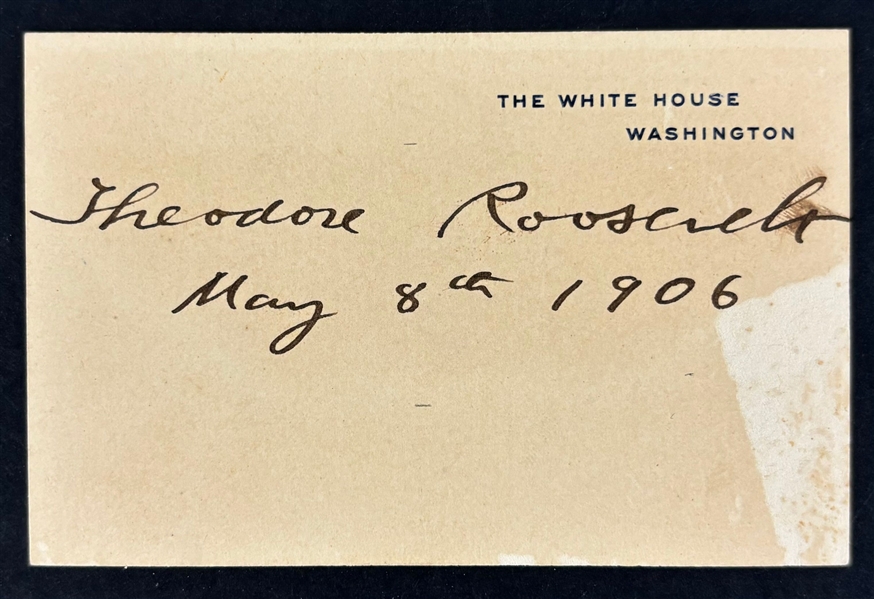 THE WHITE HOUSE
WASHINGTON
Theodore Roosevelt
May 8th 1906